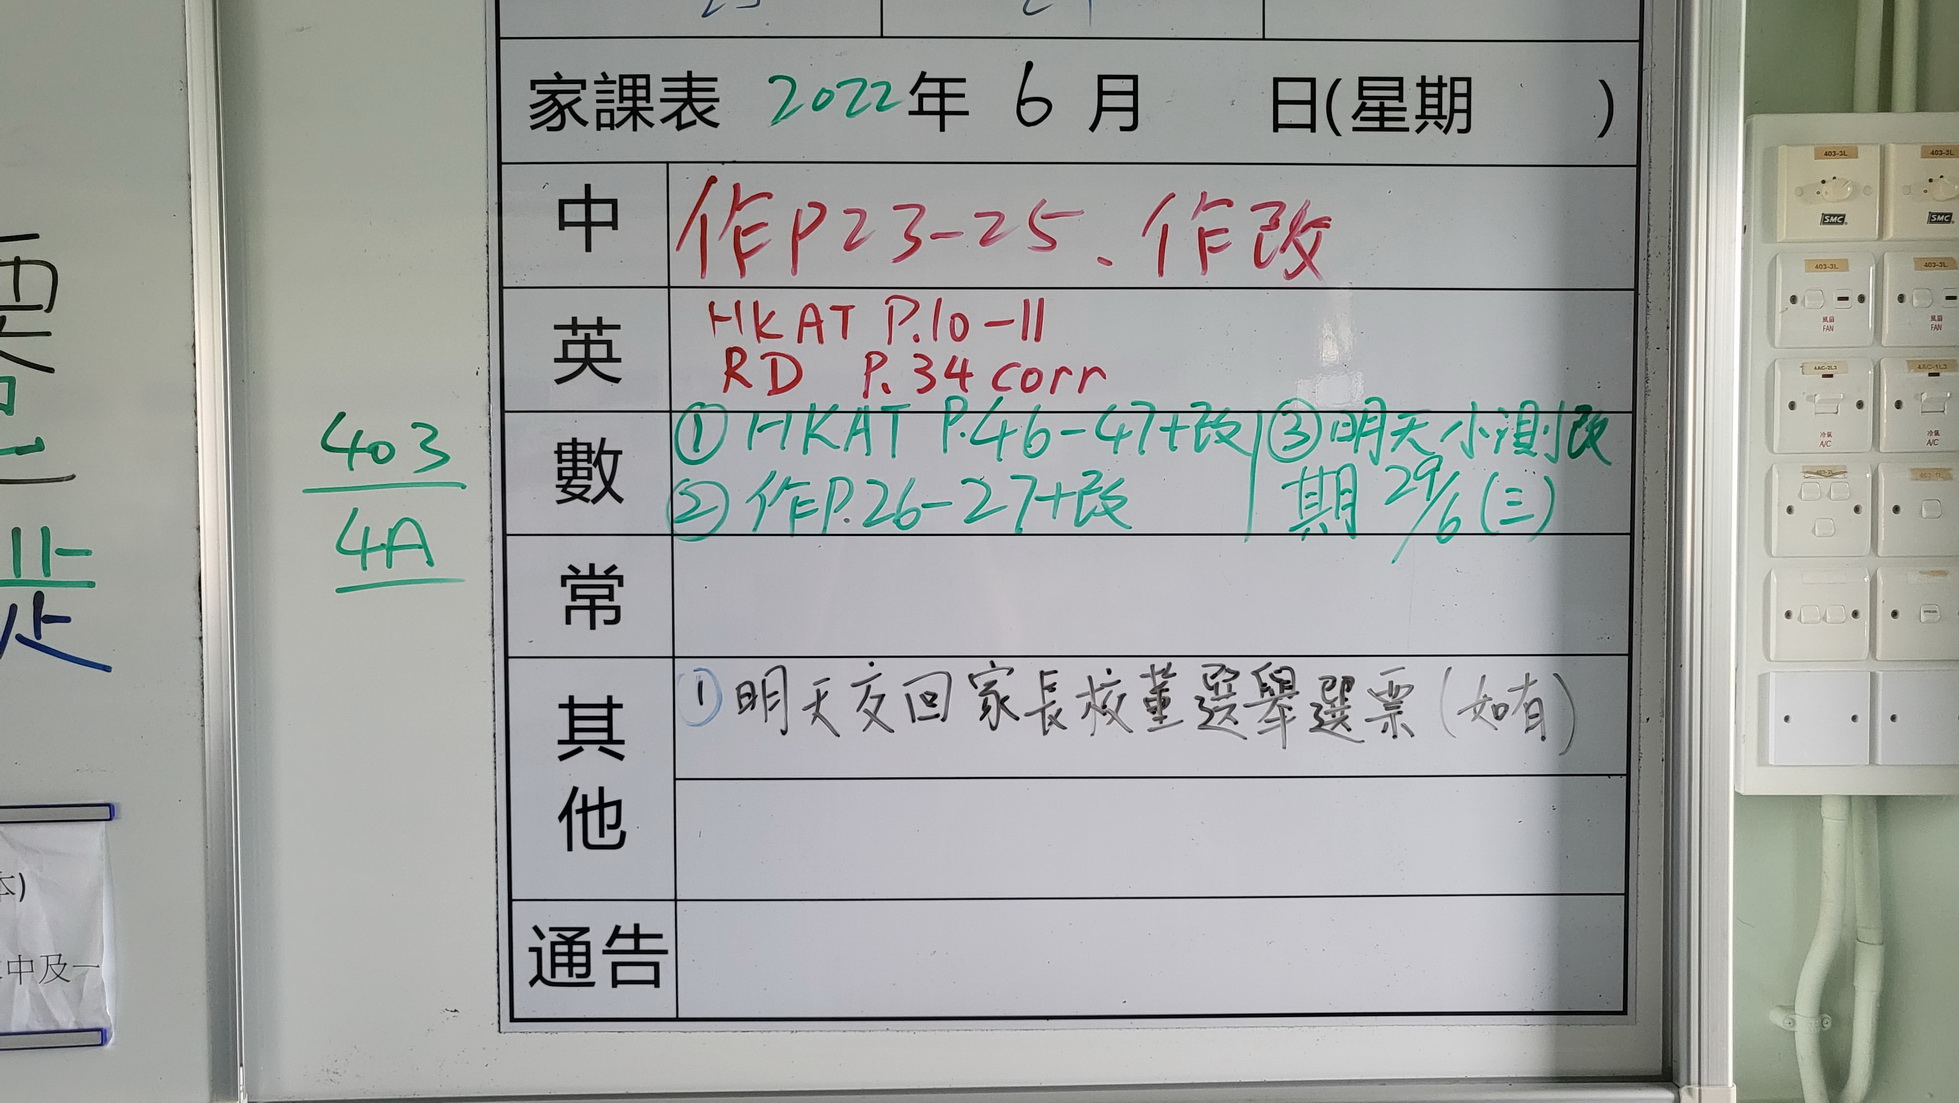 家課表 2022年 6 月 日(星期 )
中 作P23-25、作改
英 HKAT P.10-11
RD P.34 corr
數 ① HKAT P.46-47+改 ③明天小測改
② 作P.26-27+改 期 29/6(三)
常
其他 ①明天交回家長校董選舉選票(如有)
通告
403
4A
本)
中及一
403-3L
403-3L
SMC
SMC
403-3L
403-3L
風扇
FAN
風扇
FAN
冷氣
A/C
冷氣
A/C